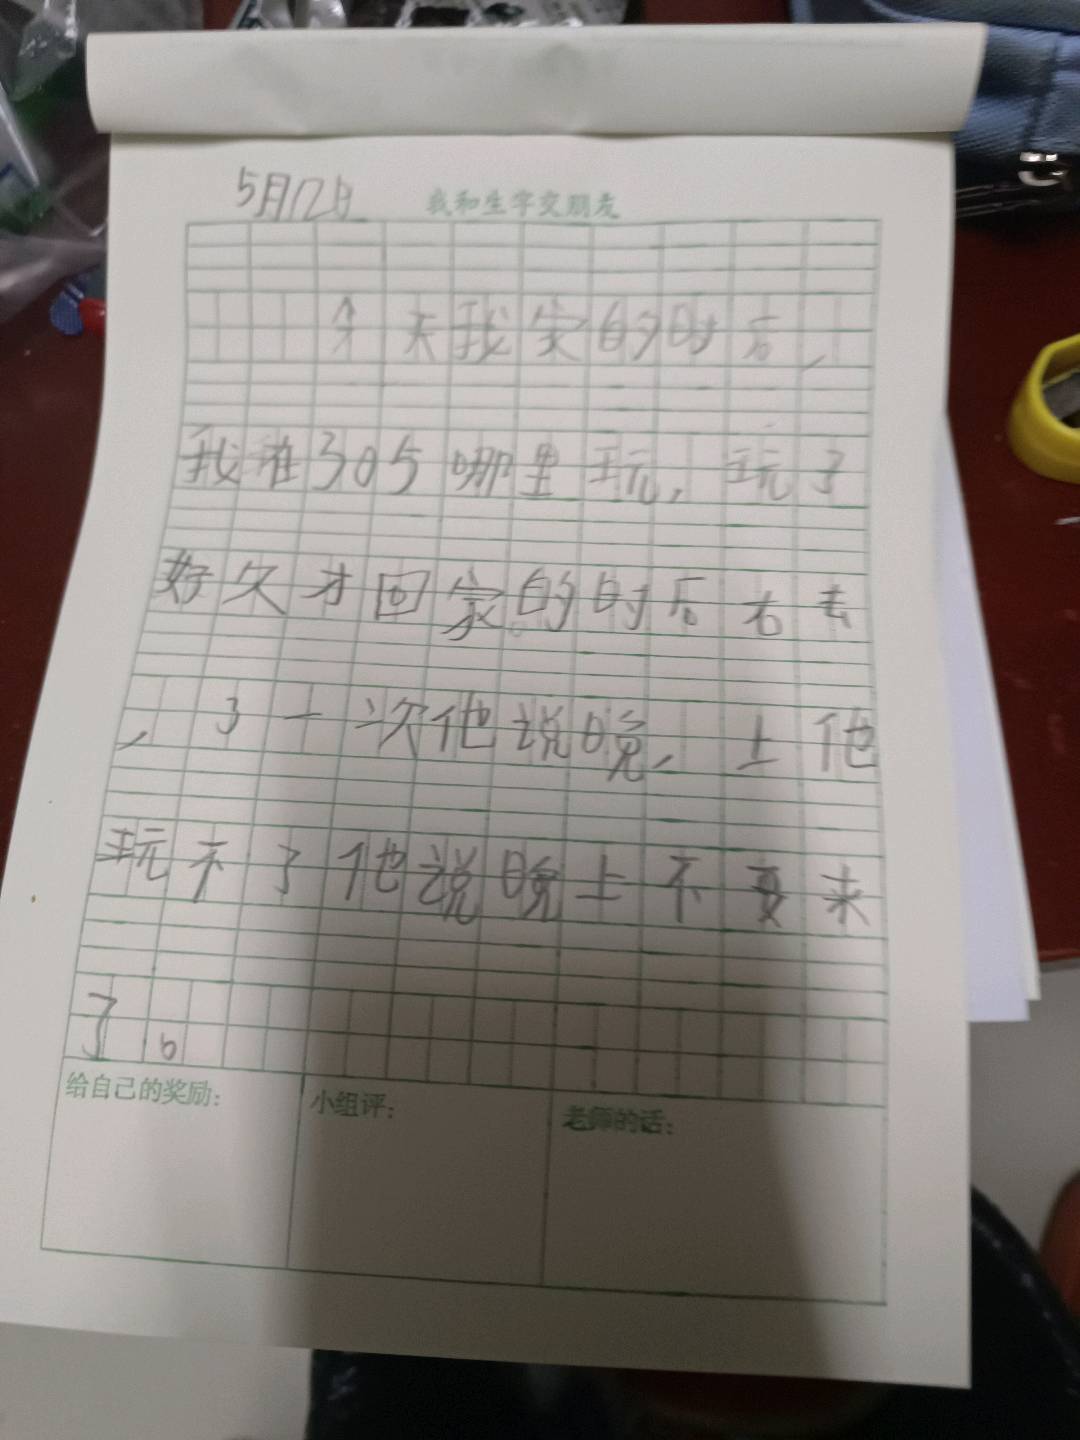 5月12日 我和生字交朋友
今天我家的时后，
我难305哪里玩，玩了
好久才回家的时后右去
，了一次他说晚，上他
玩不了他说晚上不要来
了。
给自己的奖励： 小组评： 老师的话：